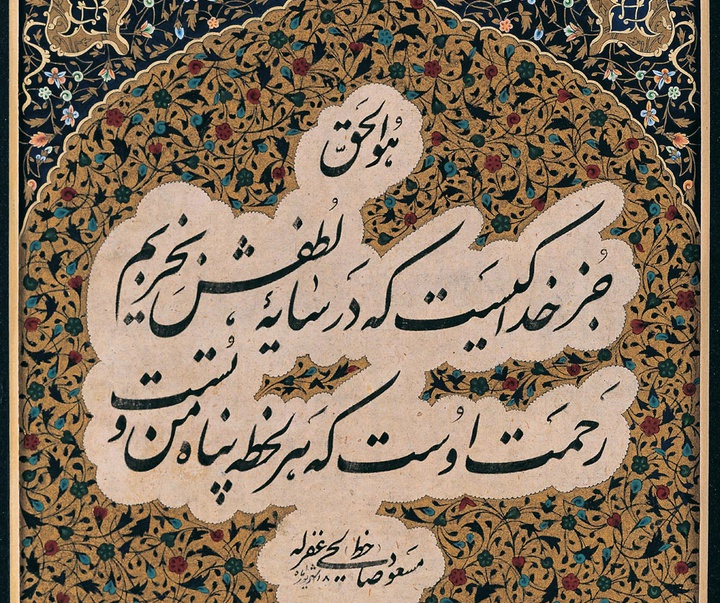 هُوَ الحَقّ
جُز خدا کیست که دَر سایهٔ لُطفش بخزیم
رَحمت اوست که هَر لحظه پناه من و تُست
خط مسعود صالحی غفرله